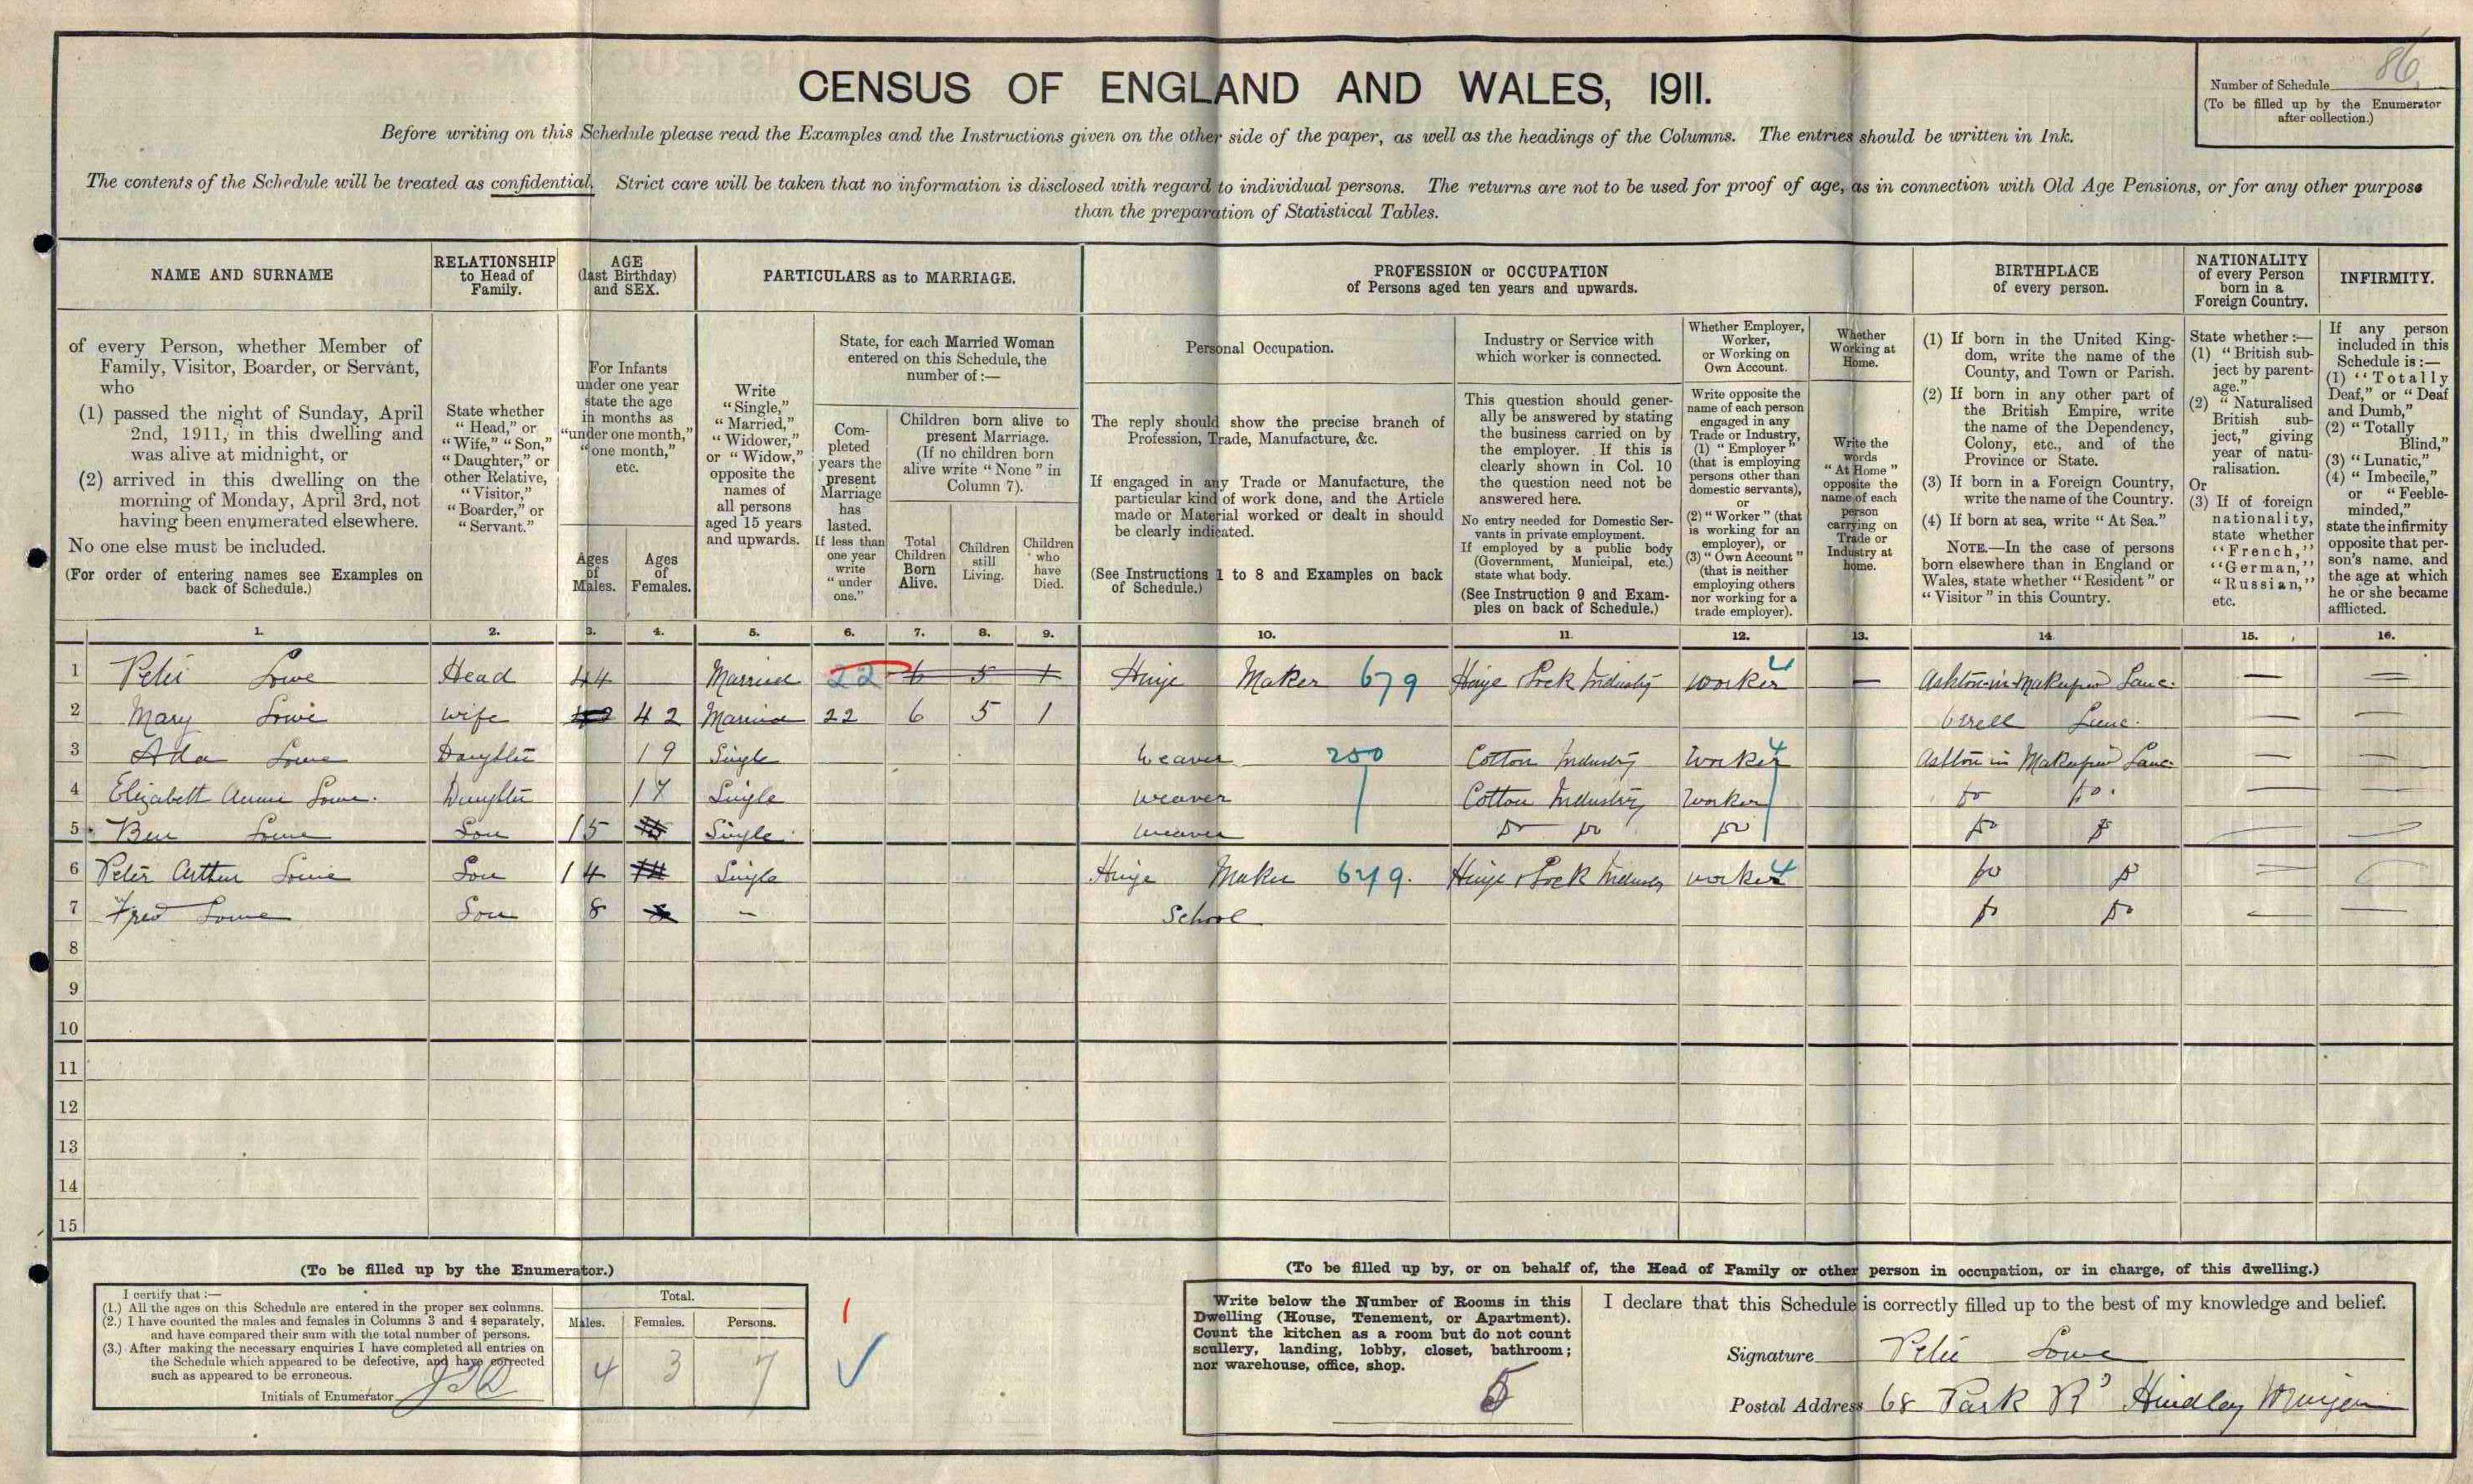 86
Number of Schedule
(To be filled up by the Enumerator
after collection.)
CENSUS OF ENGLAND AND WALES, 1911.
Before writing on this Schedule please read the Examples and the Instructions given on the other side of the paper, as well as the headings of the Columns. The entries should be written in Ink.
The contents of the Schedule will be treated as confidential. Strict care will be taken that no information is disclosed with regard to individual persons. The returns are not to be used for proof of age, as in connection with Old Age Pensions, or for any other purpose
than the preparation of Statistical Tables.
NAME AND SURNAME
of every Person, whether Member of
Family, Visitor, Boarder, or Servant,
who
(1) passed the night of Sunday, April
2nd, 1911, in this dwelling and
was alive at midnight, or
(2) arrived in this dwelling on the
morning of Monday, April 3rd, not
having been enumerated elsewhere.
No one else must be included.
(For order of entering names see Examples on
back of Schedule.)
RELATIONSHIP
to Head of
Family.
State whether
"Head," or
"Wife," "Son,"
"Daughter," or
other Relative,
"Visitor,"
"Boarder," or
"Servant."
AGE
(last Birthday)
and SEX.
For Infants
under one year
state the age
in months as
"under one month,"
"one month,"
etc.
Ages
of
Males.
Ages
of
Females.
PARTICULARS as to MARRIAGE.
Write
"Single,"
"Married,"
"Widower,"
or "Widow,"
opposite the
names of
all persons
aged 15 years
and upwards.
State, for each Married Woman
entered on this Schedule, the
number of:—
Com-
pleted
years the
present
Marriage
has
lasted.
If less than
one year
write
"under
one."
Children born alive to
present Marriage.
(If no children born
alive write "None" in
Column 7).
Total
Children
Born
Alive.
Children
still
Living.
Children
who
have
Died.
PROFESSION or OCCUPATION
of Persons aged ten years and upwards.
Personal Occupation.
The reply should show the precise branch of
Profession, Trade, Manufacture, &c.
If engaged in any Trade or Manufacture, the
particular kind of work done, and the Article
made or Material worked or dealt in should
be clearly indicated.
(See Instructions 1 to 8 and Examples on back
of Schedule.)
Industry or Service with
which worker is connected.
This question should gener-
ally be answered by stating
the business carried on by
the employer. If this is
clearly shown in Col. 10
the question need not be
answered here.
No entry needed for Domestic Ser-
vants in private employment.
If employed by a public body
(Government, Municipal, etc.)
state what body.
(See Instruction 9 and Exam-
ples on back of Schedule.)
Whether Employer,
Worker,
or Working on
Own Account.
Write opposite the
name of each person
engaged in any
Trade or Industry,
(1) "Employer"
(that is employing
persons other than
domestic servants),
or
(2) "Worker" (that
is working for an
employer), or
(3) "Own Account"
(that is neither
employing others
nor working for a
trade employer).
Whether
Working at
Home.
Write the
words
"At Home"
opposite the
name of each
person
carrying on
Trade or
Industry at
home.
BIRTHPLACE
of every person.
(1) If born in the United King-
dom, write the name of the
County, and Town or Parish.
(2) If born in any other part of
the British Empire, write
the name of the Dependency,
Colony, etc., and of the
Province or State.
(3) If born in a Foreign Country,
write the name of the Country.
(4) If born at sea, write "At Sea."
NOTE.—In the case of persons
born elsewhere than in England or
Wales, state whether "Resident" or
"Visitor" in this Country.
NATIONALITY
of every Person
born in a
Foreign Country.
State whether:—
(1) "British sub-
ject by parent-
age."
(2) "Naturalised
British sub-
ject," giving
year of natu-
ralisation.
Or
(3) If of foreign
nationality,
state whether
"French,"
"German,"
"Russian,"
etc.
INFIRMITY.
If any person
included in this
Schedule is:—
(1) "Totally
Deaf," or "Deaf
and Dumb,"
(2) "Totally
Blind,"
(3) "Lunatic,"
(4) "Imbecile,"
or "Feeble-
minded,"
state the infirmity
opposite that per-
son's name, and
the age at which
he or she became
afflicted.
1. 2. 3. 4. 5. 6. 7. 8. 9. 10. 11. 12. 13. 14. 15. 16.
1 Peter Lowe Head 44 Married 22 6 5 1 Hinge Maker 679 Hinge & Lock Industry Worker 4 — Ashton-in-Makerfield Lanc. — —
2 Mary Lowe Wife 42 42 Married 22 6 5 1 Orrell Lanc. — —
3 Ada Lowe Daughter 19 Single Weaver 250 Cotton Industry Worker 4 Ashton in Makerfield Lanc. — —
4 Elizabeth Annie Lowe. Daughter 17 Single Weaver Cotton Industry Worker Do Do. — —
5 Ben Lowe Son 15 15 Single Weaver Do Do Do Do Do — —
6 Peter Arthur Lowe Son 14 14 Single Hinge Maker 679. Hinge & Lock Industry Worker 4 Do Do — —
7 Fred Lowe Son 8 8 — School Do Do — —
8
9
10
11
12
13
14
15
(To be filled up by the Enumerator.)
I certify that:—
(1.) All the ages on this Schedule are entered in the proper sex columns.
(2.) I have counted the males and females in Columns 3 and 4 separately,
and have compared their sum with the total number of persons.
(3.) After making the necessary enquiries I have completed all entries on
the Schedule which appeared to be defective, and have corrected
such as appeared to be erroneous.
Initials of Enumerator
Total.
Males. Females. Persons.
4 3 7
(To be filled up by, or on behalf of, the Head of Family or other person in occupation, or in charge, of this dwelling.)
Write below the Number of Rooms in this
Dwelling (House, Tenement, or Apartment).
Count the kitchen as a room but do not count
scullery, landing, lobby, closet, bathroom;
nor warehouse, office, shop.
5
I declare that this Schedule is correctly filled up to the best of my knowledge and belief.
Signature Peter Lowe
Postal Address 68 Park Rd Hindley Wigan